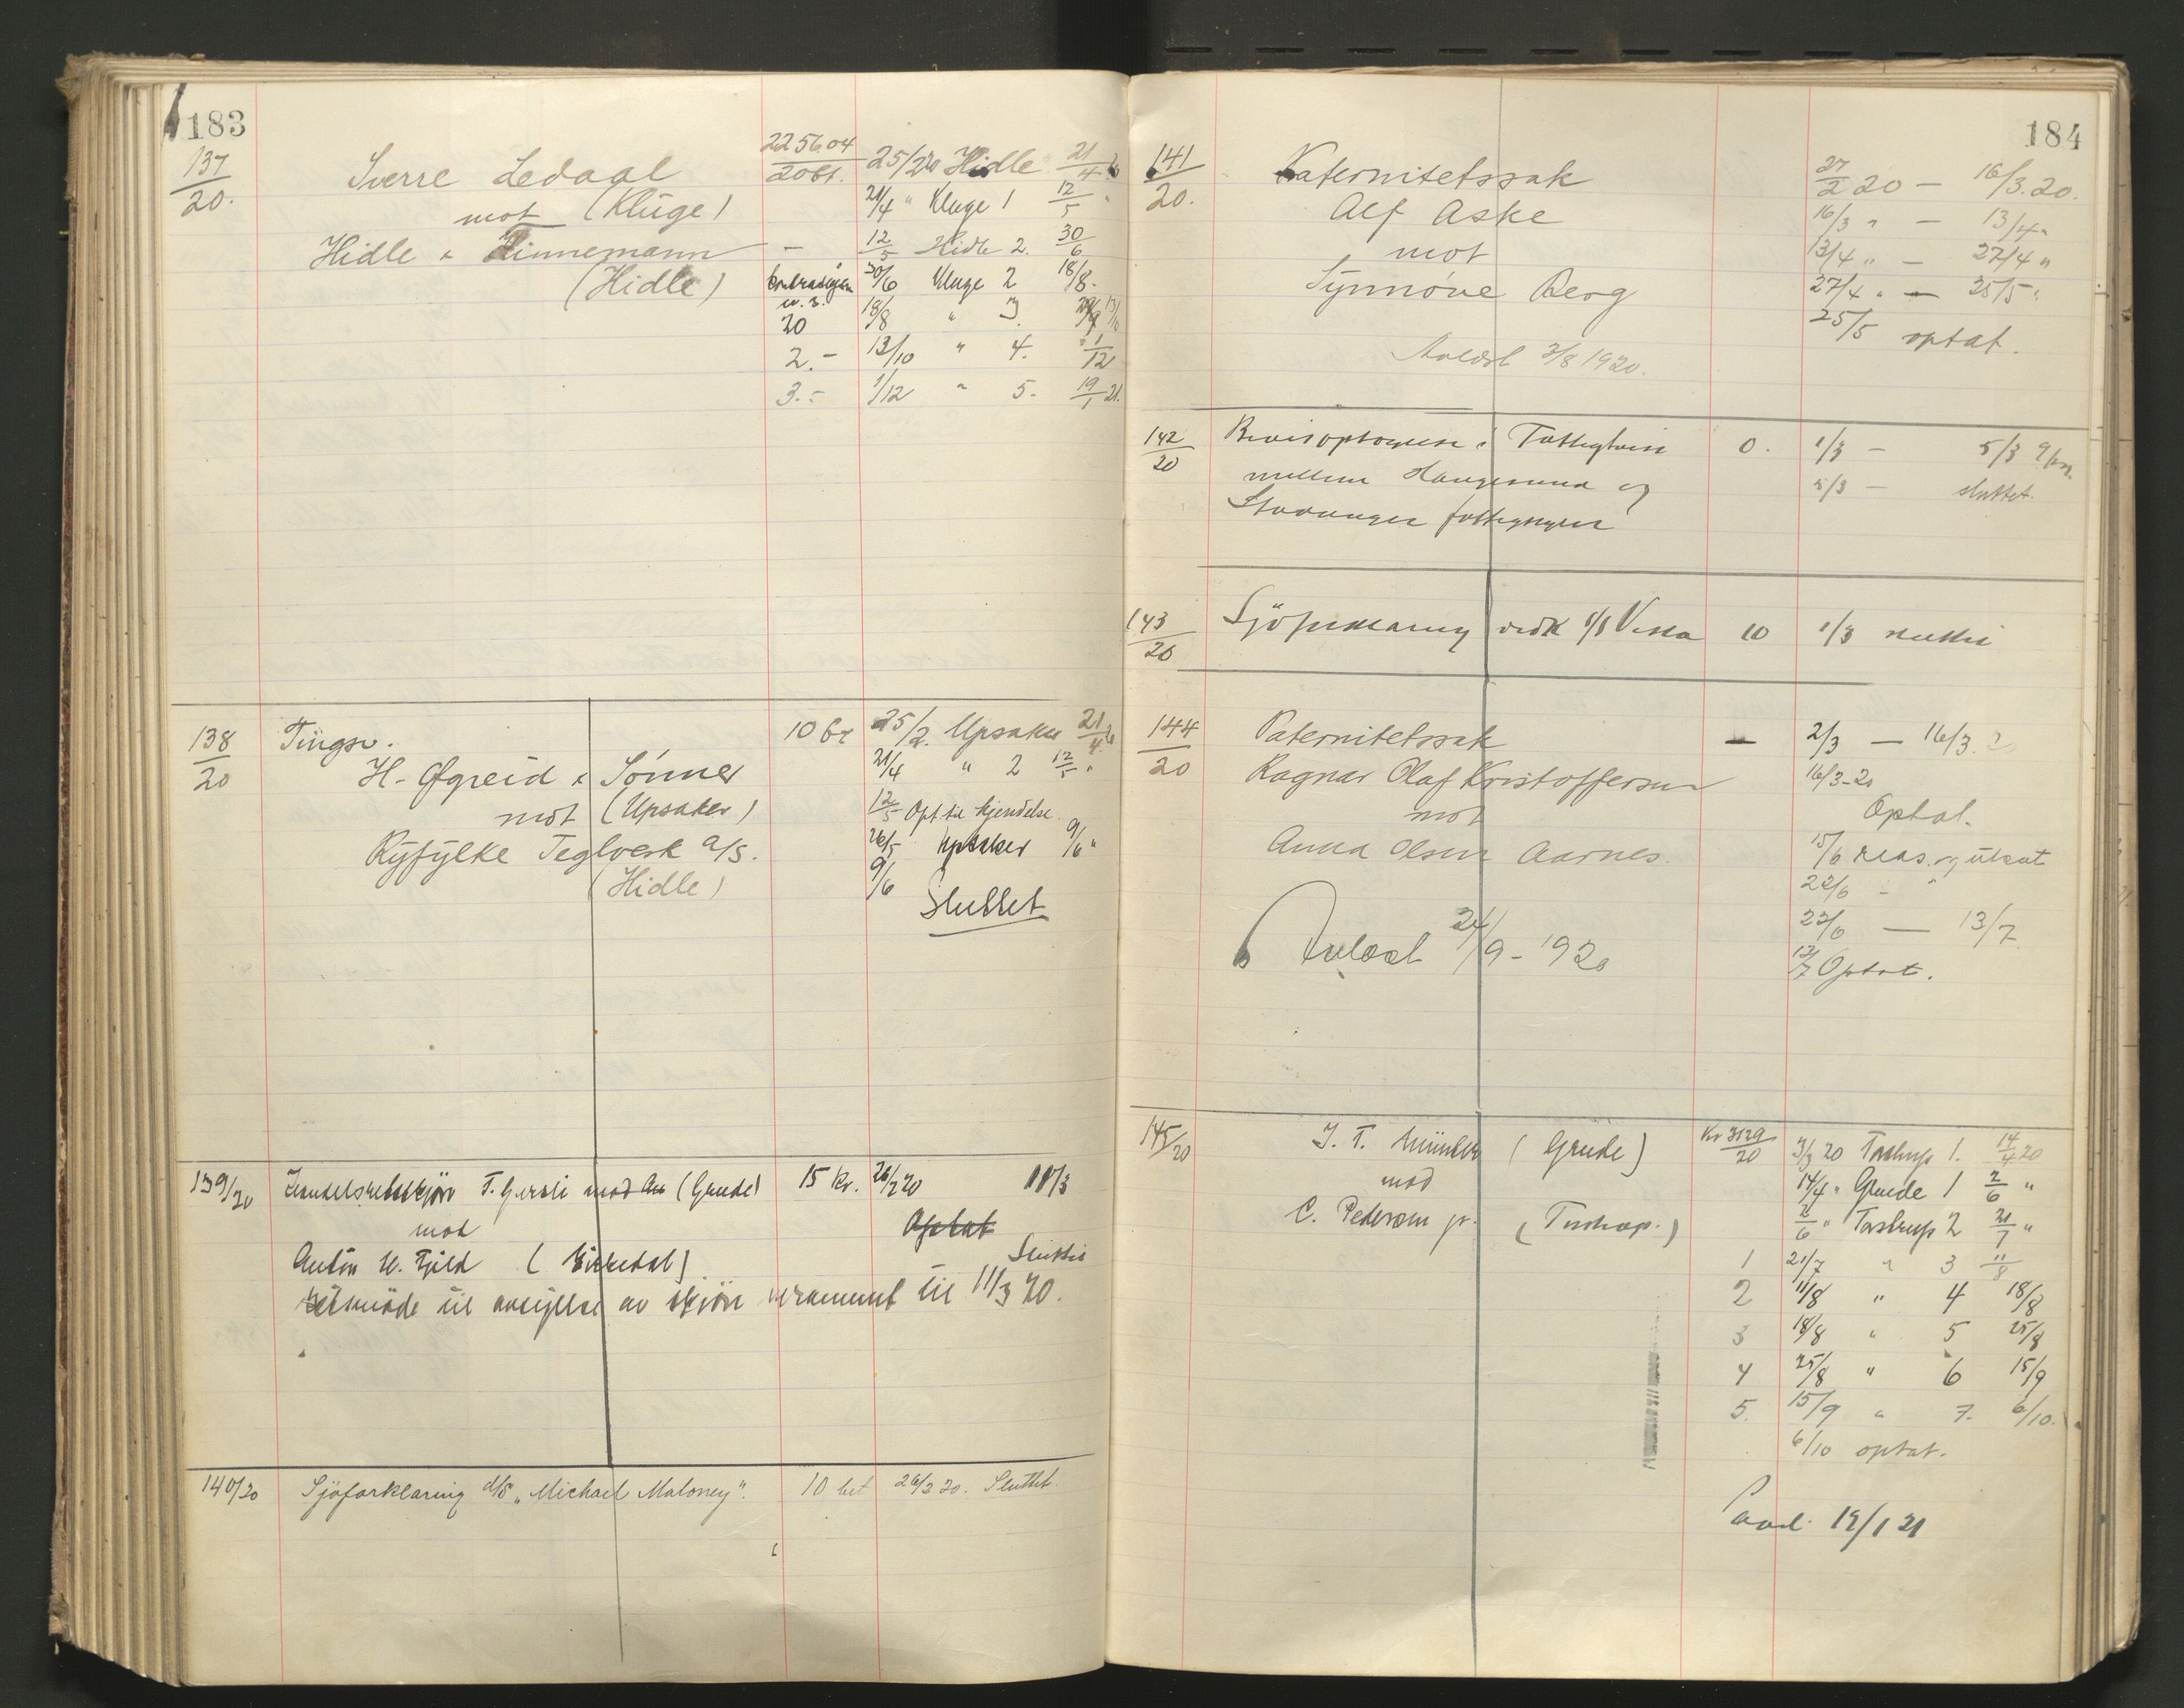 183
137/20. Sverre Ledaal 225604/20 bt. 25/2 20 Hidle 21/4
mot (Kluge) 21/4 " Kluge 1 12/5 "
Hidle & Zinnemann - 12/5 Hidle 2. 30/6
(Hidle) 30/6 Kluge 2 18/8.
20 18/8 " 3.
2.- 13/10 " 4. 1/12
3.- 1/12 " 5. 19/1 21.
138/20 Tingsv. 10 bt 25/2. Upsaker 21/4
H. Øgreid & Sønner 21/4 " 2 12/5 "
mot (Upsaker) 12/5 Opt. til kjendelse.
Ryfylke Teglverk a/s. 26/5 Upsaker 9/6 "
(Hidle) 9/6
Sluttet
139/20 T. Gjersli mod (Grude) 15 kr. 26/2 20 11/3
mod Optat
Anton H. Fjeld Sluttet
Retsmöde til avsigelse av skjön berammet til 11/3 20.
140/20 Sjöforklaring d/s "Michael Maloney". 10 bet 26/2 20. Sluttet.
184
141/20. Paternitetssak 27/2 20 - 16/3.20.
Alf Aske 16/3 " - 13/4 "
mot 13/4 " - 27/4 "
Synnøve Berg 27/4 " - 25/5 "
25/5 optat.
Avlæst 3/8 1920.
142/20 Bevisoptagelse i 0. 1/3 - 5/3
mellem Haugesund og 5/3 - sluttet.
Stavanger fattigstyrer
143/20 Sjöforklaring vedk s/s Vesla 10 1/3 sluttet
144/20 Paternitetssak - 2/3 - 16/3.20
Ragnar Olaf Kristoffersen 16/3-20
mot Optat.
Anna Olsen Aarnes. 15/6 reas. og utsat
22/6 - "
22/6 - 13/7
Avlæst 24/9 - 1920 13/7 Optat.
145/20 (Grude) Kr 3129/20 3/3 20 Tastrup 1. 14/4 20
mod 14/4 " Grude 1 2/6 "
C. Pedersen jr. (Tastrup.) 2/6 " Tastrup 2 21/7 "
1 21/7 " 3 11/8
2 11/8 " 4 18/8
3 18/8 " 5 25/8
4 25/8 " 6 15/9
5. 15/9 " 7. 6/10.
6/10 optat.
12/1 21